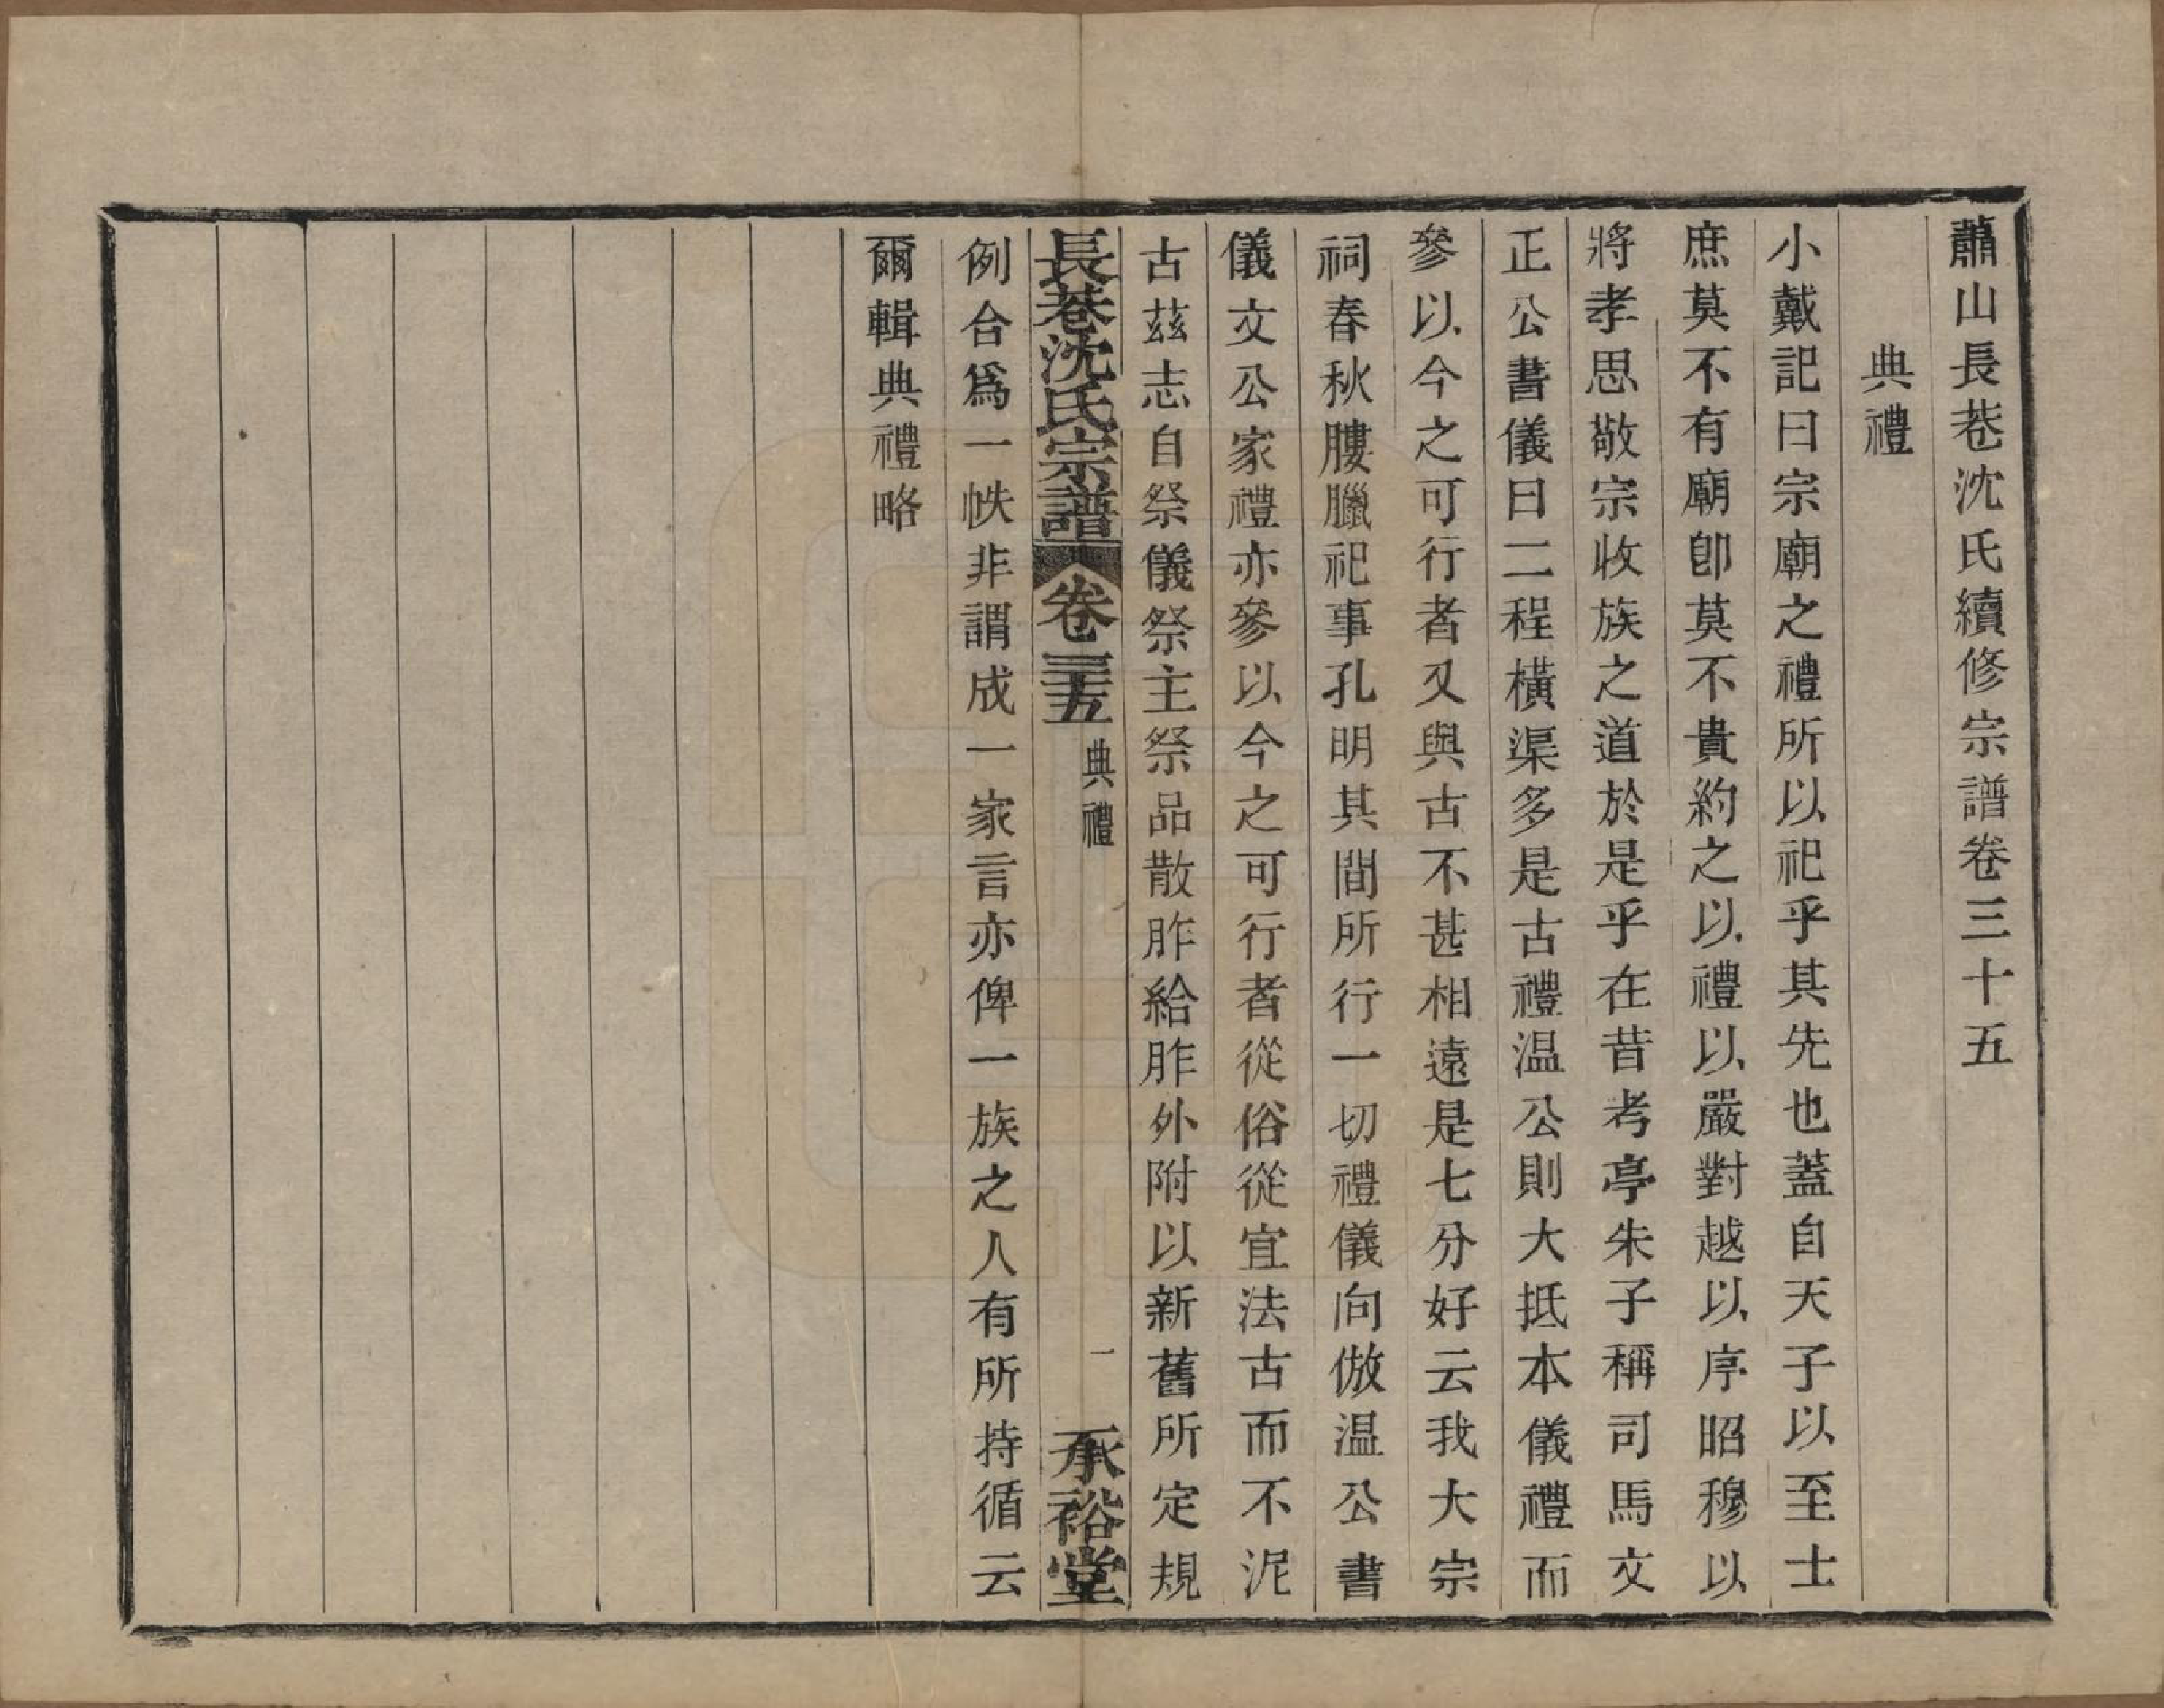 蕭山長巷沈氏續修宗譜卷三十五
典禮
小戴記曰宗廟之禮所以祀乎其先也蓋自天子以至士
庶莫不有廟卽莫不貴約之以禮以嚴對越以序昭穆以
將孝思敬宗收族之道於是乎在昔考亭朱子稱司馬文
正公書儀曰二程橫渠多是古禮温公則大抵本儀禮而
參以今之可行者又與古不甚相遠是七分好云我大宗
祠春秋膢臘祀事孔明其間所行一切禮儀向倣温公書
儀文公家禮亦參以今之可行者從俗從宜法古而不泥
古茲志自祭儀祭主祭品散胙給胙外附以新舊所定規
長巷沈氏宗譜 卷三十五 典禮 一 承裕堂
例合爲一帙非謂成一家言亦俾一族之人有所持循云
爾輯典禮略